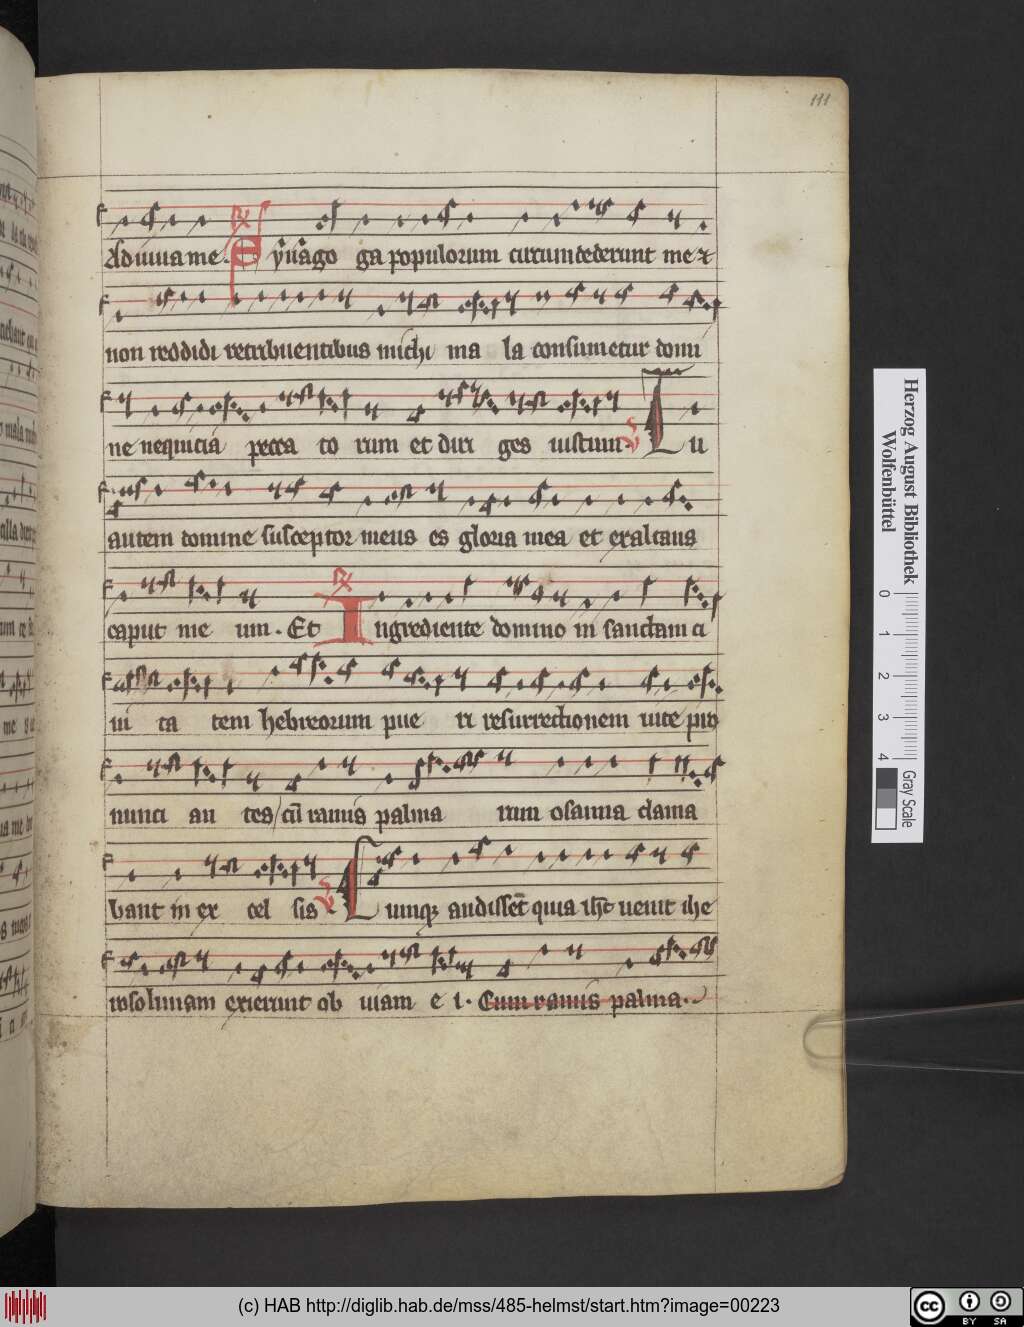 111
Adiuua me. ℟ Synago ga populorum circumdederunt me ⁊
non reddidi retribuentibus michi ma la consumetur domi
ne nequicia pecca to rum et diri ges iustum. ℣ Tu
autem domine susceptor meus es gloria mea et exaltans
caput me um. Et ℟ Ingrediente domino in sanctam ci
ui ta tem hebreorum pue ri resurrectionem uite pro
nunci an tes / cū ramis palma rum osanna clama
bant in ex cel sis ℣ Cunqꝫ audissēt quia ih̄c uenit ihe
rosolimam exierunt ob uiam e i. Cum ramis palma.
Herzog August Bibliothek
Wolfenbüttel
0 1 2 3 4
Gray Scale
(c) HAB http://diglib.hab.de/mss/485-helmst/start.htm?image=00223
cc BY SA